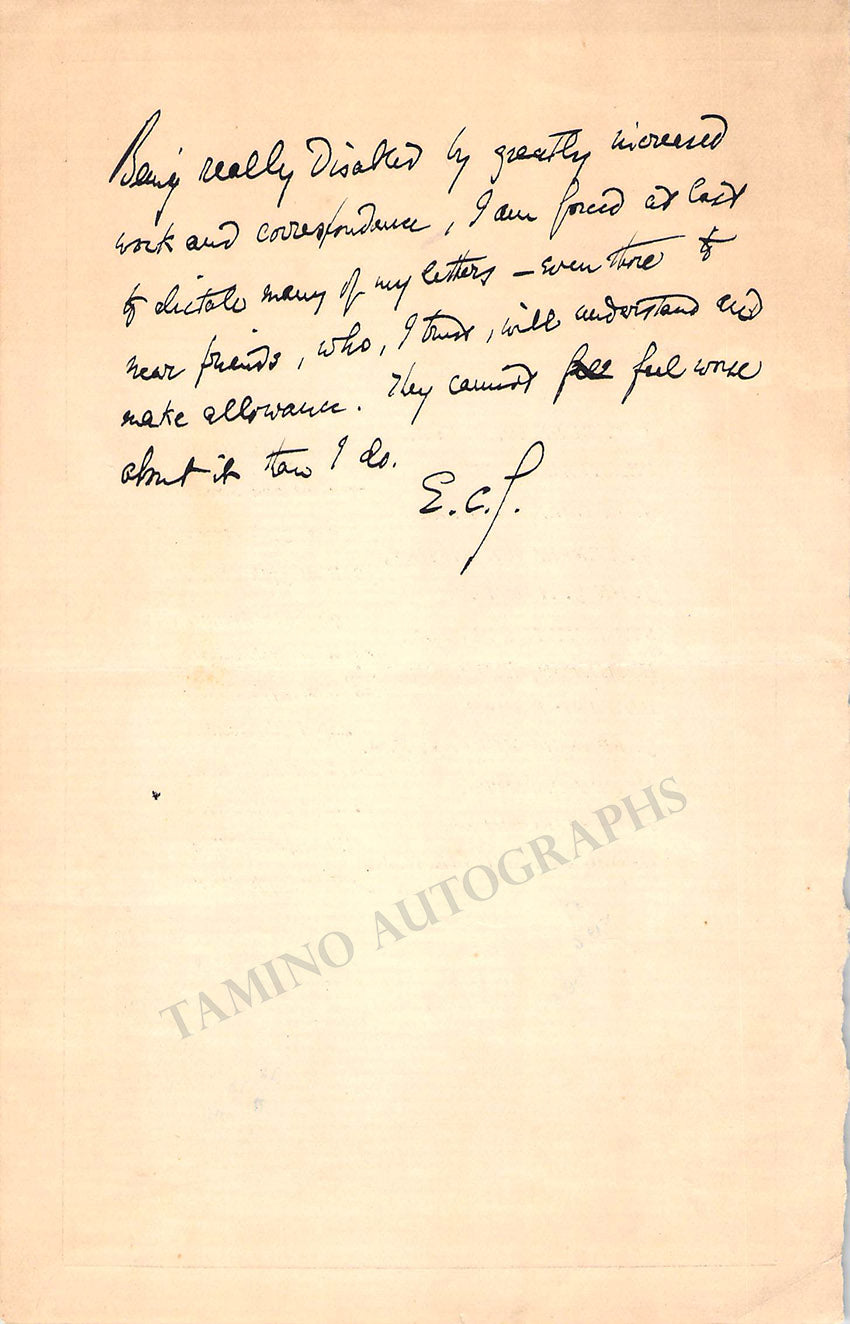 Being really disabled by greatly increased
work and correspondence, I am forced at last
to dictate many of my letters – even those to
near friends, who, I trust, will understand and
make allowance. They cannot feel feel worse
about it than I do.
E.C.S.
TAMINO AUTOGRAPHS